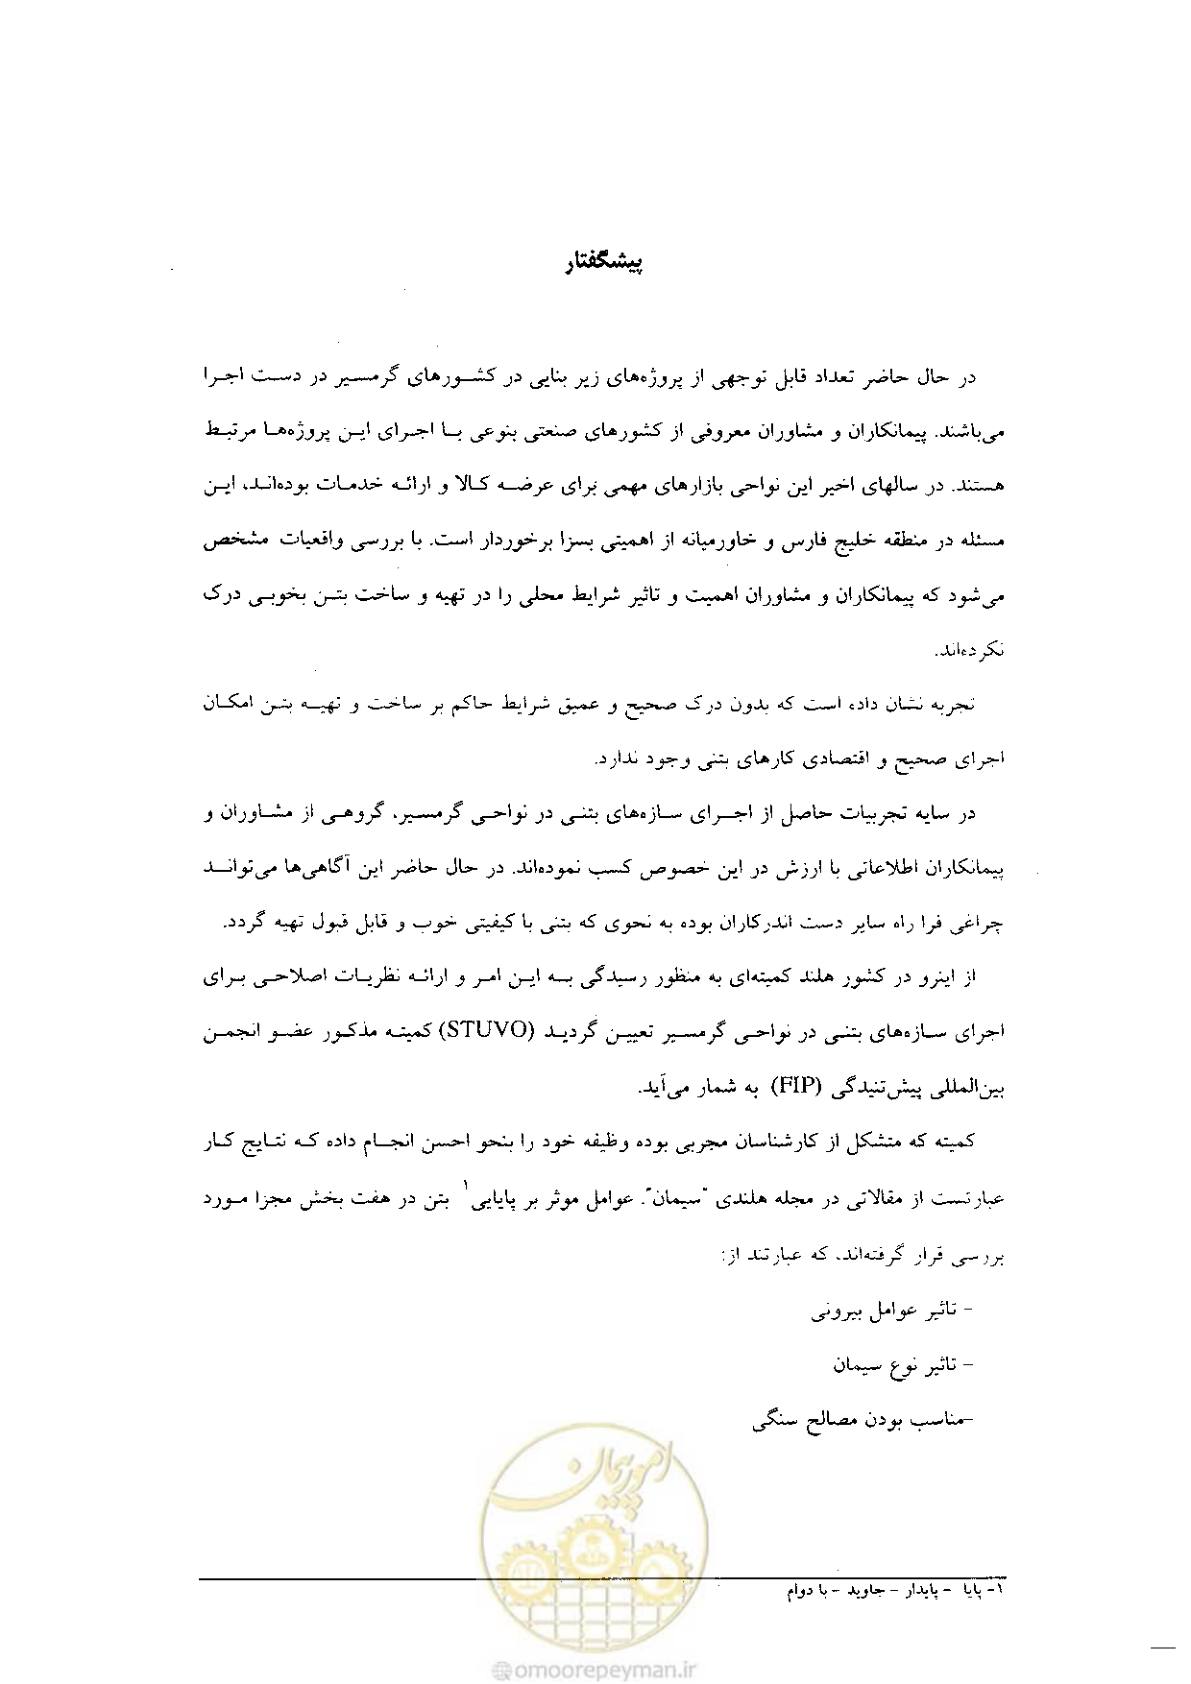 پیشگفتار
در حال حاضر تعداد قابل توجهی از پروژه‌های زیر بنایی در کشورهای گرمسیر در دست اجرا
می‌باشند. پیمانکاران و مشاوران معروفی از کشورهای صنعتی بنوعی با اجرای این پروژه‌ها مرتبط
هستند. در سالهای اخیر این نواحی بازارهای مهمی برای عرضه کالا و ارائه خدمات بوده‌اند، این
مسئله در منطقه خلیج فارس و خاورمیانه از اهمیتی بسزا برخوردار است. با بررسی واقعیات مشخص
می‌شود که پیمانکاران و مشاوران اهمیت و تاثیر شرایط محلی را در تهیه و ساخت بتن بخوبی درک
نکرده‌اند.
تجربه نشان داده است که بدون درک صحیح و عمیق شرایط حاکم بر ساخت و تهیه بتن امکان
اجرای صحیح و اقتصادی کارهای بتنی وجود ندارد.
در سایه تجربیات حاصل از اجرای سازه‌های بتنی در نواحی گرمسیر، گروهی از مشاوران و
پیمانکاران اطلاعاتی با ارزش در این خصوص کسب نموده‌اند. در حال حاضر این آگاهی‌ها می‌تواند
چراغی فرا راه سایر دست اندرکاران بوده به نحوی که بتنی با کیفیتی خوب و قابل قبول تهیه گردد.
از اینرو در کشور هلند کمیته‌ای به منظور رسیدگی به این امر و ارائه نظریات اصلاحی برای
اجرای سازه‌های بتنی در نواحی گرمسیر تعیین گردید (STUVO) کمیته مذکور عضو انجمن
بین‌المللی پیش‌تنیدگی (FIP) به شمار می‌آید.
کمیته که متشکل از کارشناسان مجربی بوده وظیفه خود را بنحو احسن انجام داده که نتایج کار
عبارتست از مقالاتی در مجله هلندی "سیمان". عوامل موثر بر پایایی۱ بتن در هفت بخش مجزا مورد
بررسی قرار گرفته‌اند، که عبارتند از:
- تاثیر عوامل بیرونی
- تاثیر نوع سیمان
-مناسب بودن مصالح سنگی
امور پیمان
۱- پایا - پایدار - جاوید - با دوام
@omoorepeyman.ir